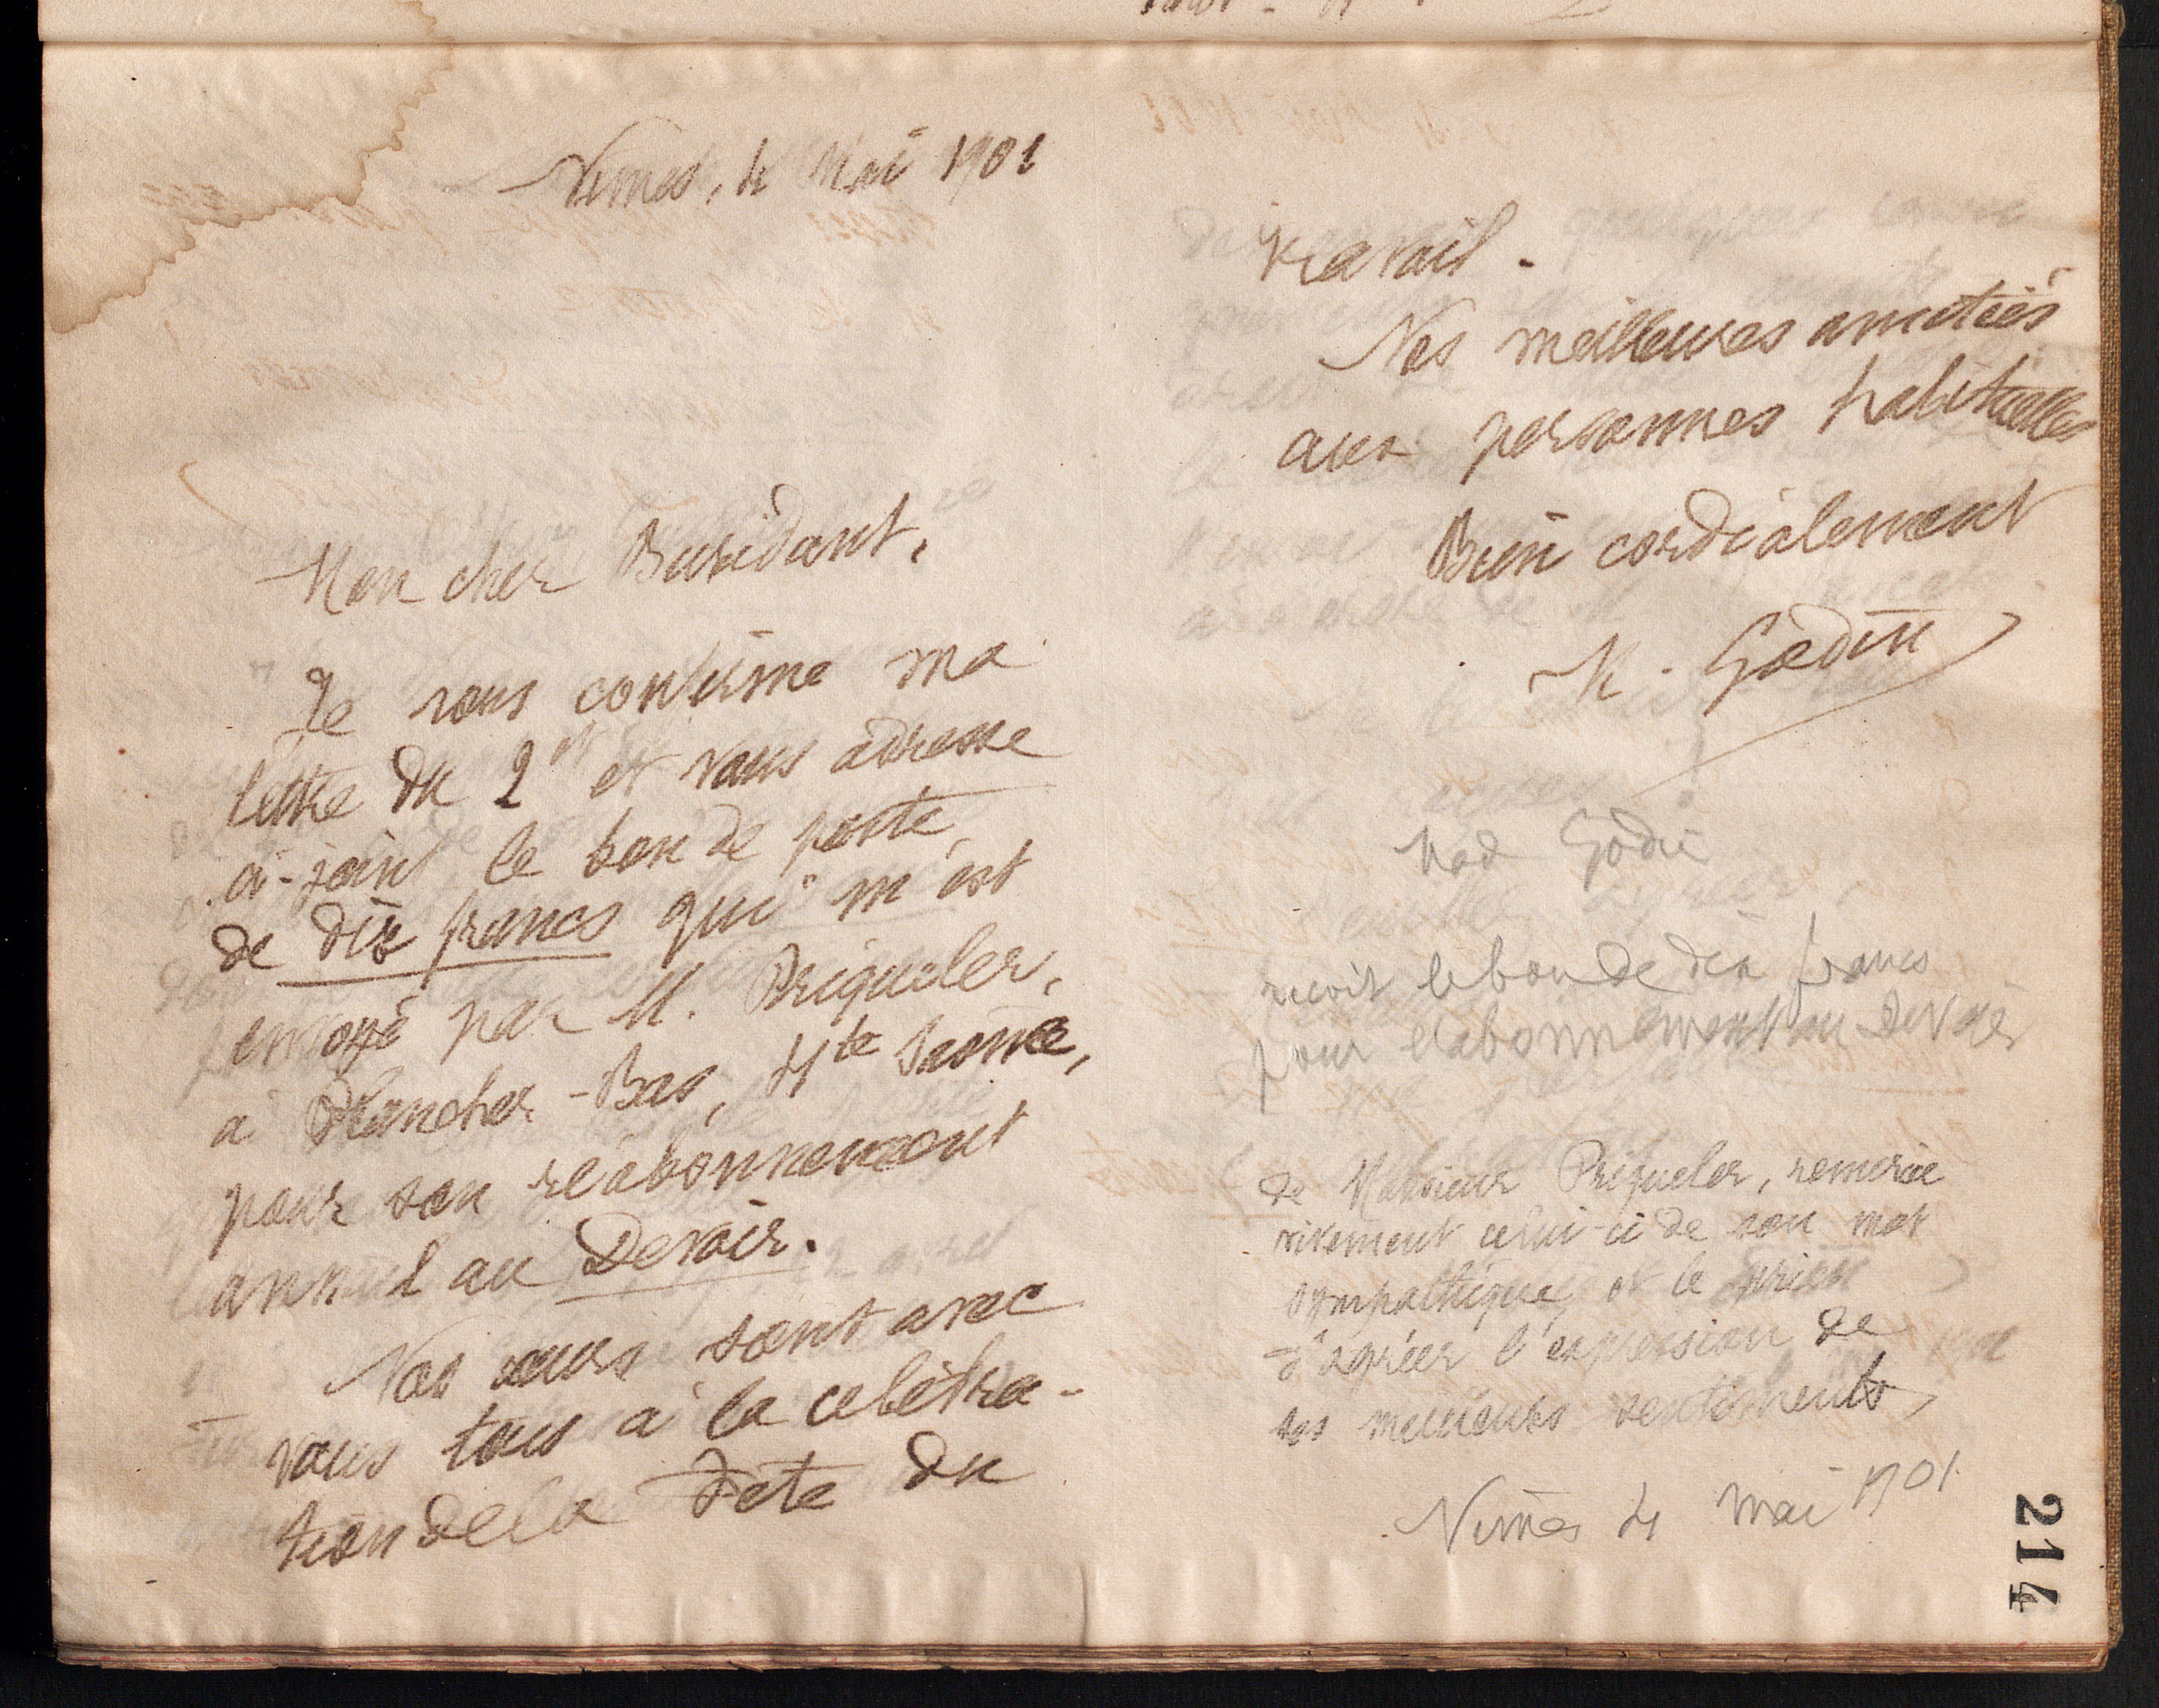 Nîmes, 4 Mai 1901
Mon cher Buridant,
Je vous confirme ma
lettre du 2 et vous adresse
ci-joint le bon de poste
de dix francs qui m'est
envoyé par M. Priqueler,
à Plancher-Bas, Hte Saône,
pour son réabonnement
annuel au Devoir.
Nos cœurs sont avec
vous tous à la célébra-
tion de la Fête du
travail.
Nos meilleures amitiés
aux personnes habituelles
Bien cordialement
M. Godin
Mad Godin
reçoit le bon de dix francs
pour l'abonnement au Devoir
de Monsieur Priqueler, remercie
vivement celui-ci de son mot
sympathique, et le prie
d'agréer l'expression de
ses meilleurs sentiments,
Nîmes 4 mai 1901
214